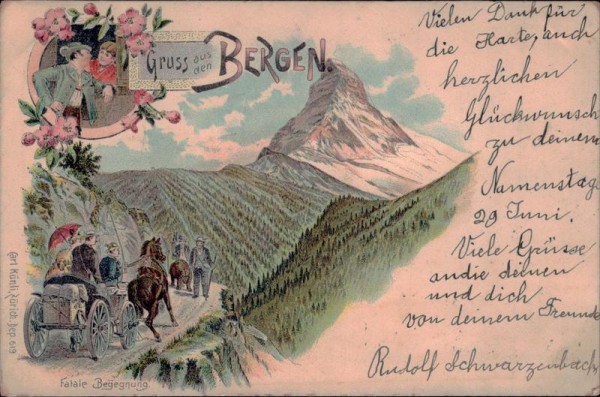 Gruss aus den BERGEN.
Vielen Dank für
die Karte, auch
herzlichen
Glückwunsch
zu deinem
Namenstag
29 Juni.
Viele Grüsse
andie deinen
und dich
von deinem Freunde
Rudolf Schwarzenbach
Fatale Begegnung
Carl Künzli, Zürich, Dep. 619